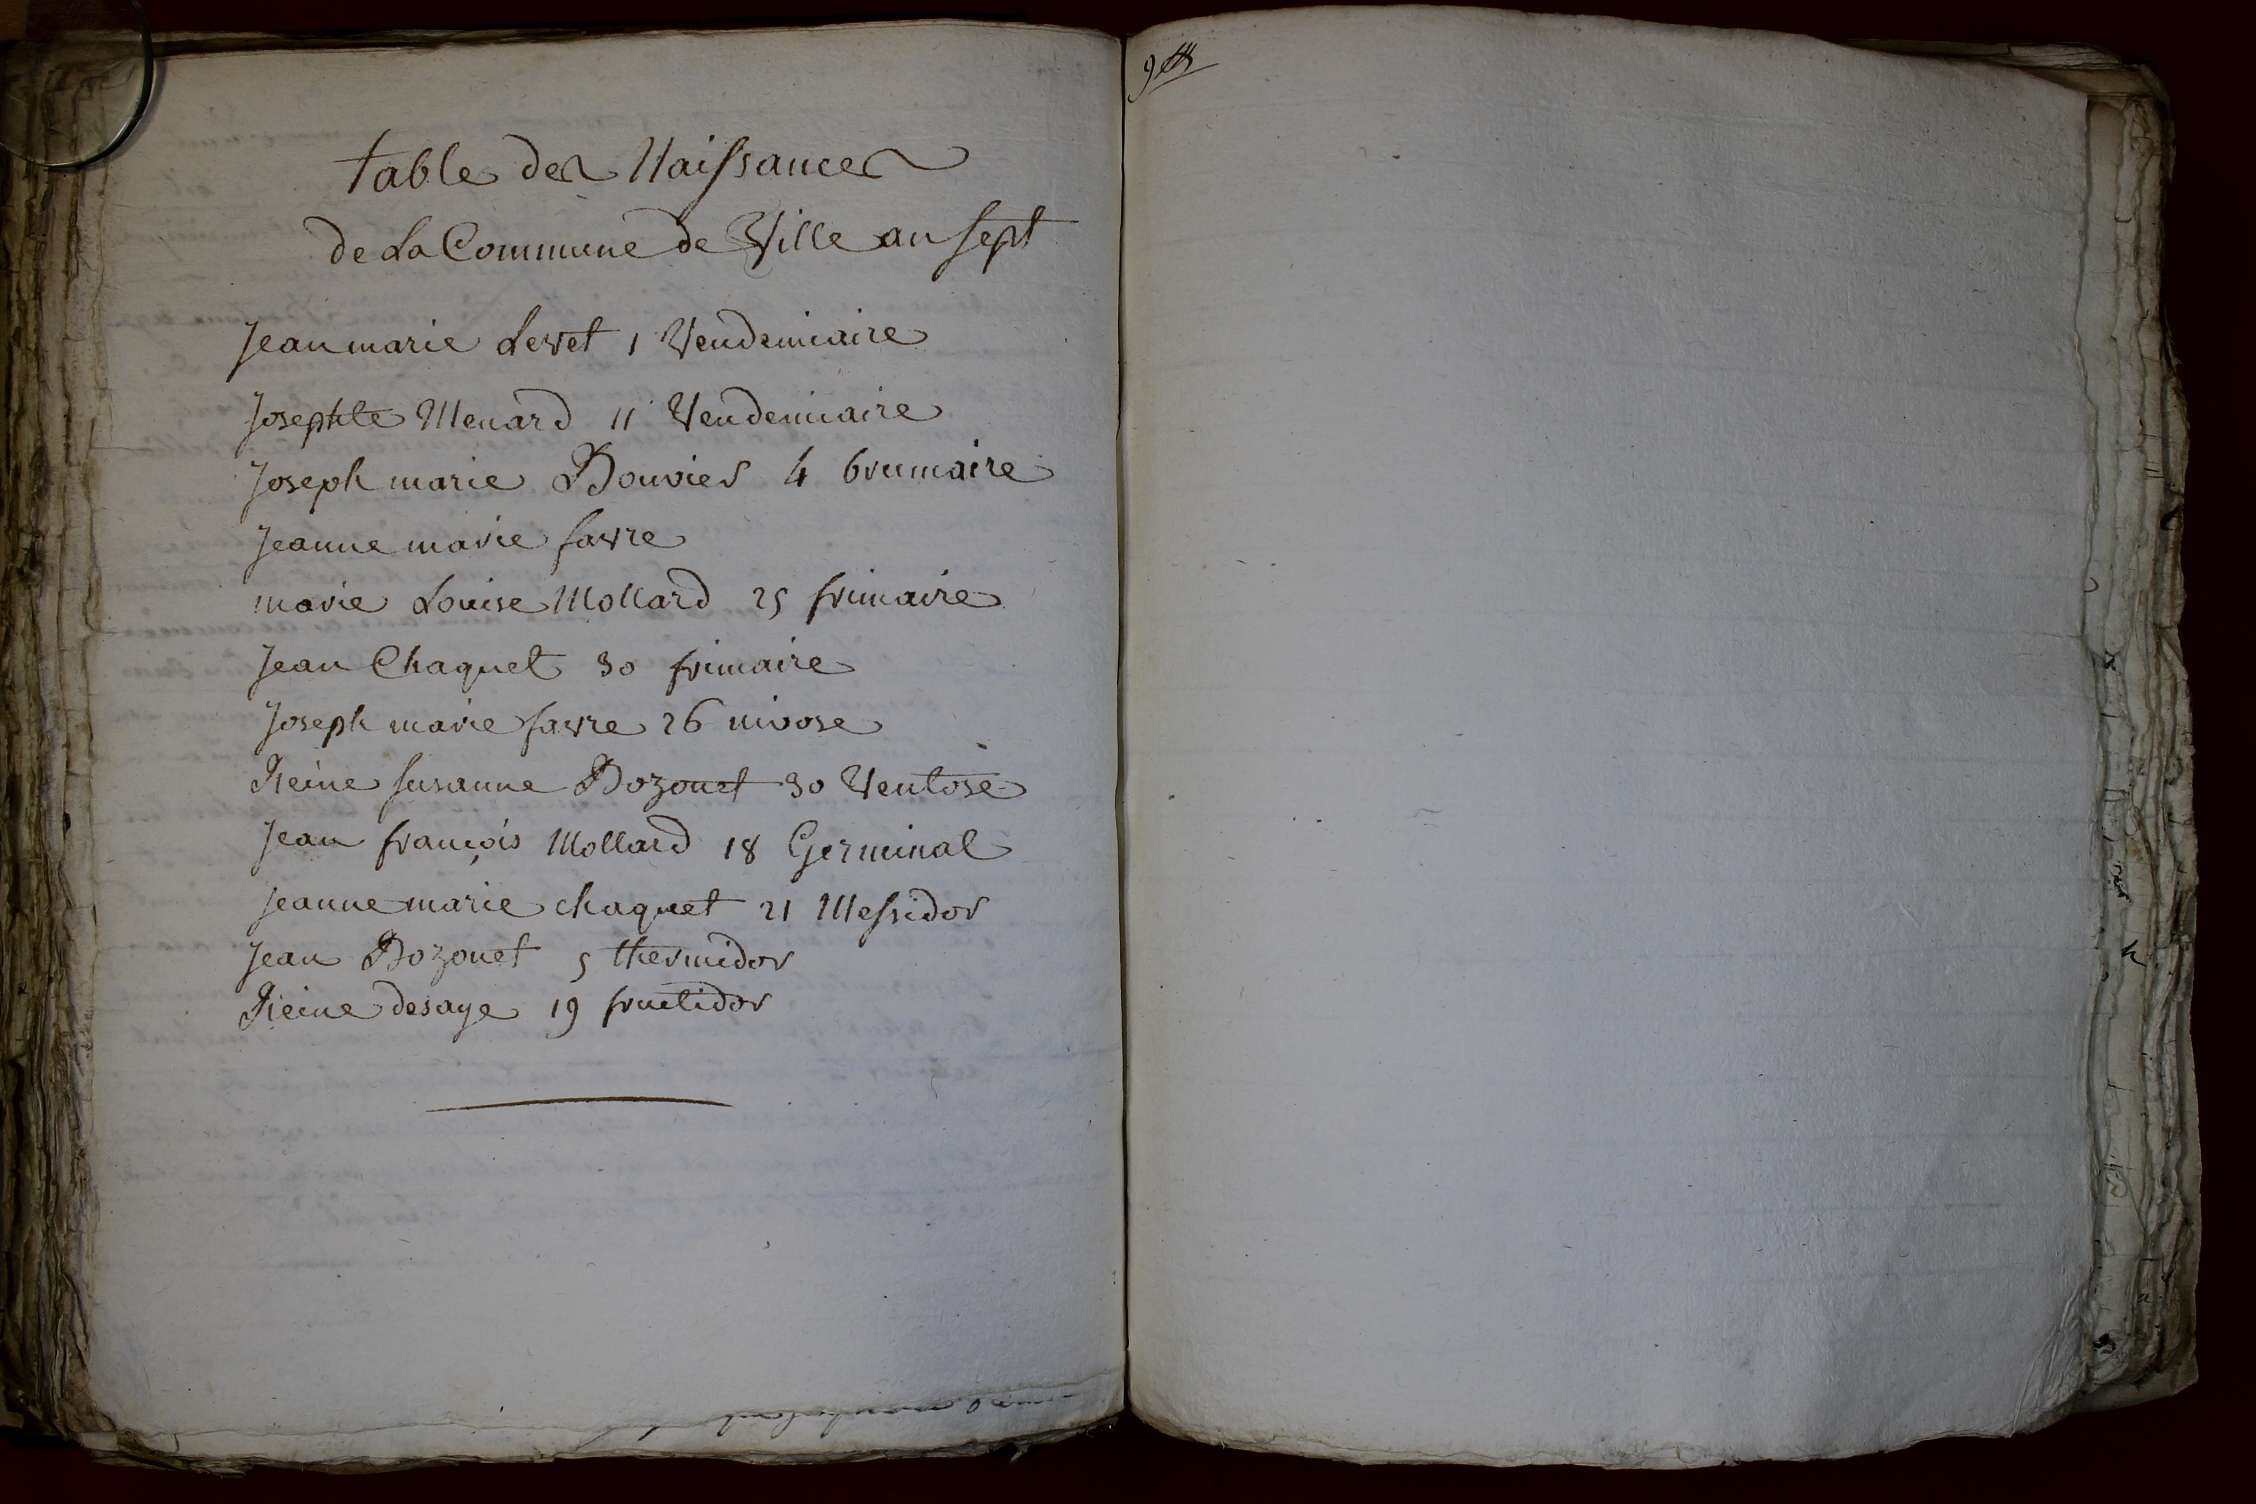 table des Naissances
de La Commune de Ville an sept
Jean marie Levet 1 Vendemiaire
Josephte Menard 11 Vendemiaire
Joseph marie Bouvier 4 brumaire
Jeanne marie favre
marie Louise Mollard 25 frimaire
Jean Chaquet 30 frimaire
Joseph marie favre 26 nivose
Reine susanne Bozonet 30 Ventose
Jean françois Mollard 18 Germinal
Jeanne marie chaquet 21 Messidor
Jean Bozonet 5 thermidor
Reine desaye 19 fructidor